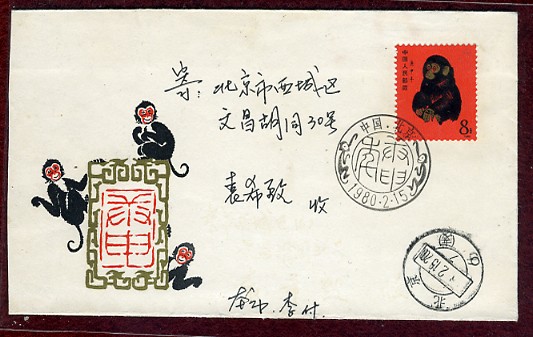 寄：北京市西城区
文昌胡同30号
袁希致 收
本市. 李付
中国人民邮政
庚申年
8分
中国·北京
庚申
1980·2·15
庚申
北京